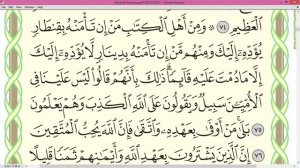 ٱلْعَظِيمِ ٧٤ وَمِنْ أَهْلِ ٱلْكِتَٰبِ مَنْ إِن تَأْمَنْهُ بِقِنطَارٍ
يُؤَدِّهِۦٓ إِلَيْكَ وَمِنْهُم مَّنْ إِن تَأْمَنْهُ بِدِينَارٍ لَّا يُؤَدِّهِۦٓ إِلَيْكَ
إِلَّا مَا دُمْتَ عَلَيْهِ قَآئِمًا ذَٰلِكَ بِأَنَّهُمْ قَالُوا۟ لَيْسَ عَلَيْنَا فِى
ٱلْأُمِّيِّـۧنَ سَبِيلٌ وَيَقُولُونَ عَلَى ٱللَّهِ ٱلْكَذِبَ وَهُمْ يَعْلَمُونَ
٧٥ بَلَىٰ مَنْ أَوْفَىٰ بِعَهْدِهِۦ وَٱتَّقَىٰ فَإِنَّ ٱللَّهَ يُحِبُّ ٱلْمُتَّقِينَ
٧٦ إِنَّ ٱلَّذِينَ يَشْتَرُونَ بِعَهْدِ ٱللَّهِ وَأَيْمَٰنِهِمْ ثَمَنًا قَلِيلًا